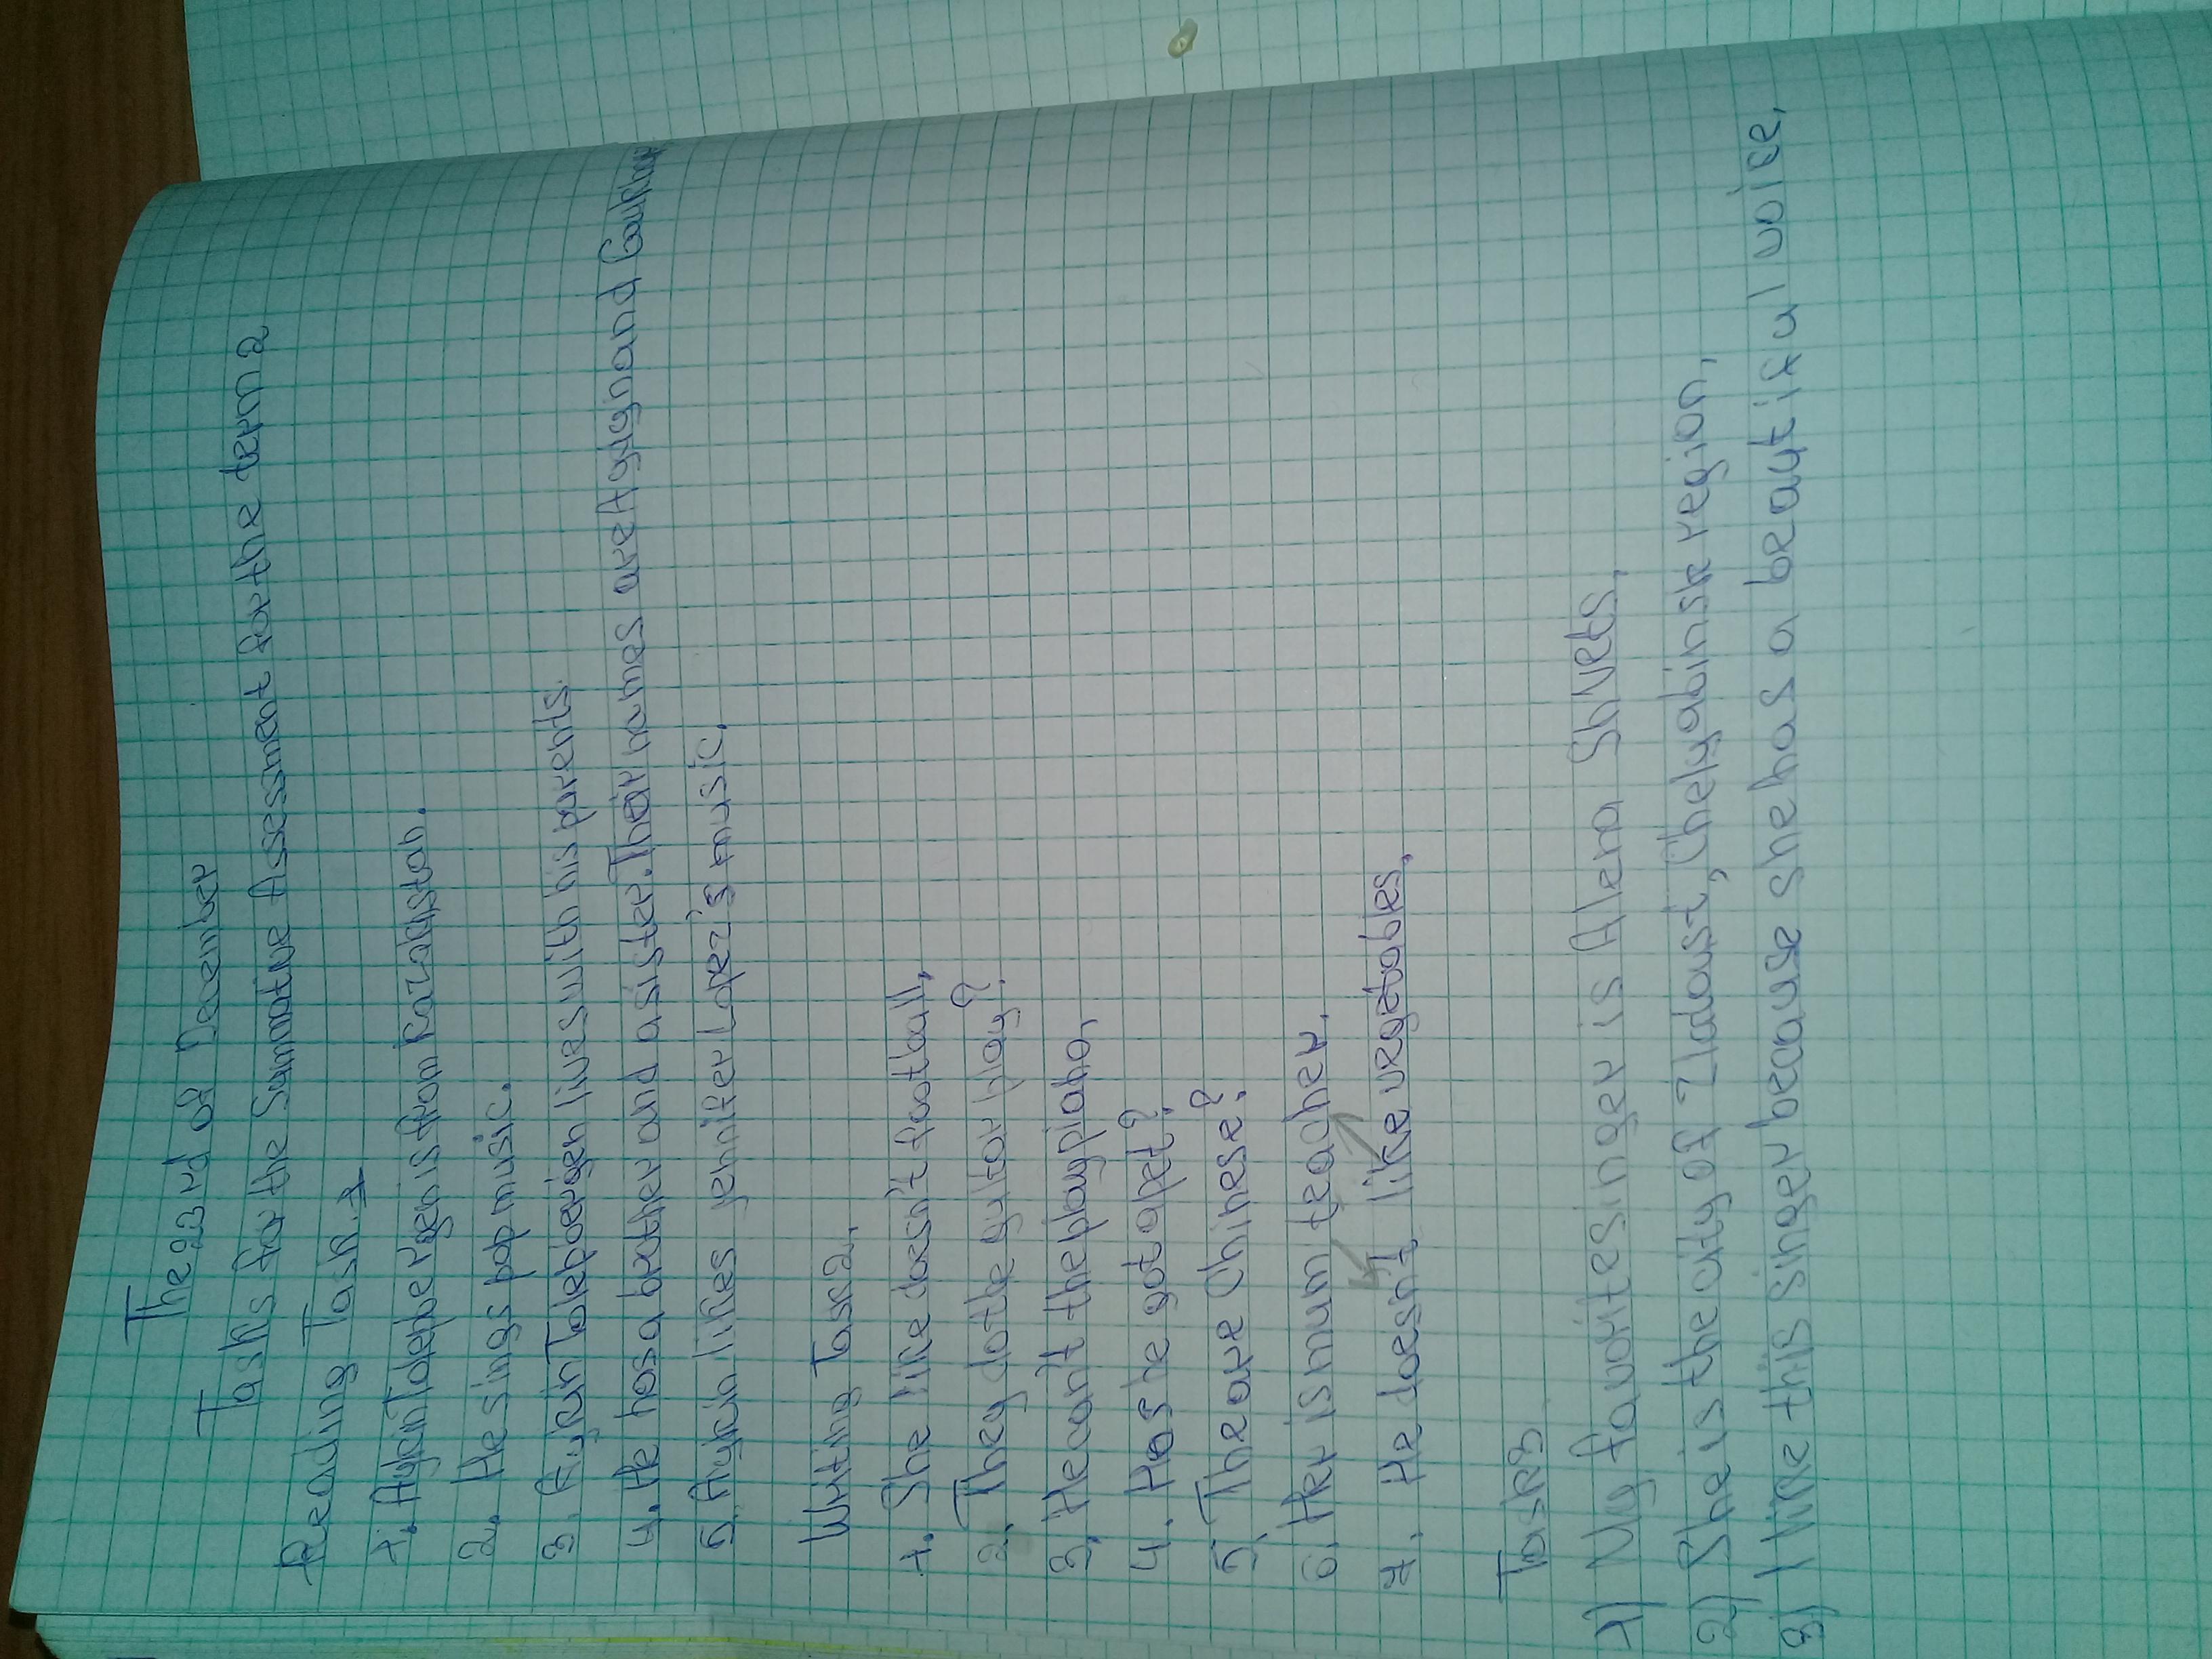 The 23rd of December
Tasks for the Summative Assessment for the term 2
Reading Task 1
1. Aykin Tolepbergen is from Kazakhstan.
2. He sings pop music.
3. Aykin Tolepbergen lives with his parents.
4. He has a brother and a sister. Their names are Aygyn and
5. Aykin likes Jennifer Lopez's music.
Writing Task 2.
1. She like doesn't football.
2. They do the guitar play?
3. He can't the play piano.
4. Has he got a pet?
5. The are Chinese?
6. Her is mum teacher.
7. He doesn't like vegetables.
Task 3
1) My favorite singer is Alena Shvets.
2) She is the city of Zlatoust, Chelyabinsk region.
3) I like this singer because she has a beautiful voice.